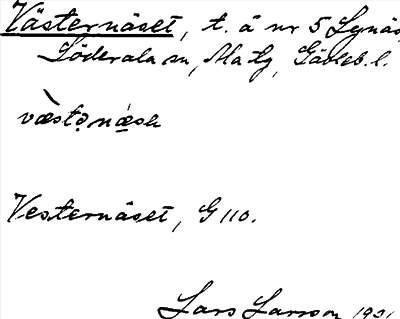 Västernäset, t. å nr 5 Lynäs,
Söderala sn, Ma tg, Gävleb. l.
væstənæsə
Vesternäset, G 110.
Lars Larsson 1931